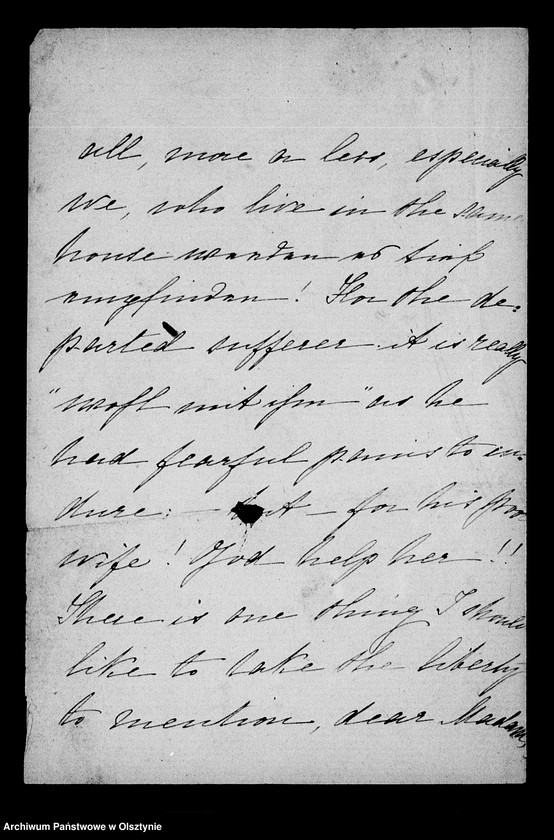 all, more or less, especially
we, who live in the same
house werden es tief
empfinden! For the de:
parted sufferer it is really
"wohl mit ihm" as he
had fearful pains to en:
dure: — but — for his poor
wife! God help her!!
There is one thing I should
like to take the liberty
to mention, dear Madam,
Archiwum Państwowe w Olsztynie